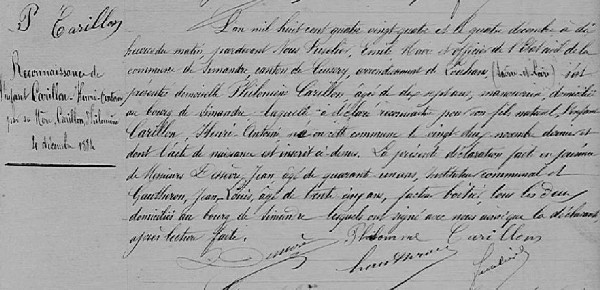 P Carillon
Reconnaissance de
l'enfant Carillon Pierre-Antoine
par sa Mère Carillon Philomène
4 décembre 1884
L'an mil huit cent quatre vingt quatre et le quatre décembre à dix
heures du matin, pardevant Nous Maire et officier de l'Etat civil de la
commune de Simandre, canton de Cuisery, arrondissement de Louhans, (Saône-et-Loire) s'est
présentée demoiselle Philomène Carillon âgée de dix sept ans, domiciliée
au bourg de Simandre laquelle a déclaré reconnaître pour son fils naturel, l'enfant
Carillon, Pierre Antoine né en cette commune le vingt deux novembre dernier et
dont l'acte de naissance est inscrit ci-dessus. La présente déclaration faite en présence
de Messieurs Desserre, Jean âgé de quarante ans, instituteur communal et
Gauthuron, Jean-Louis, âgé de trente cinq ans, facteur boîtier, tous les deux
domiciliés au bourg de Simandre lesquels ont signé avec nous ainsi que la déclarante
après lecture faite.
Philomène Carillon